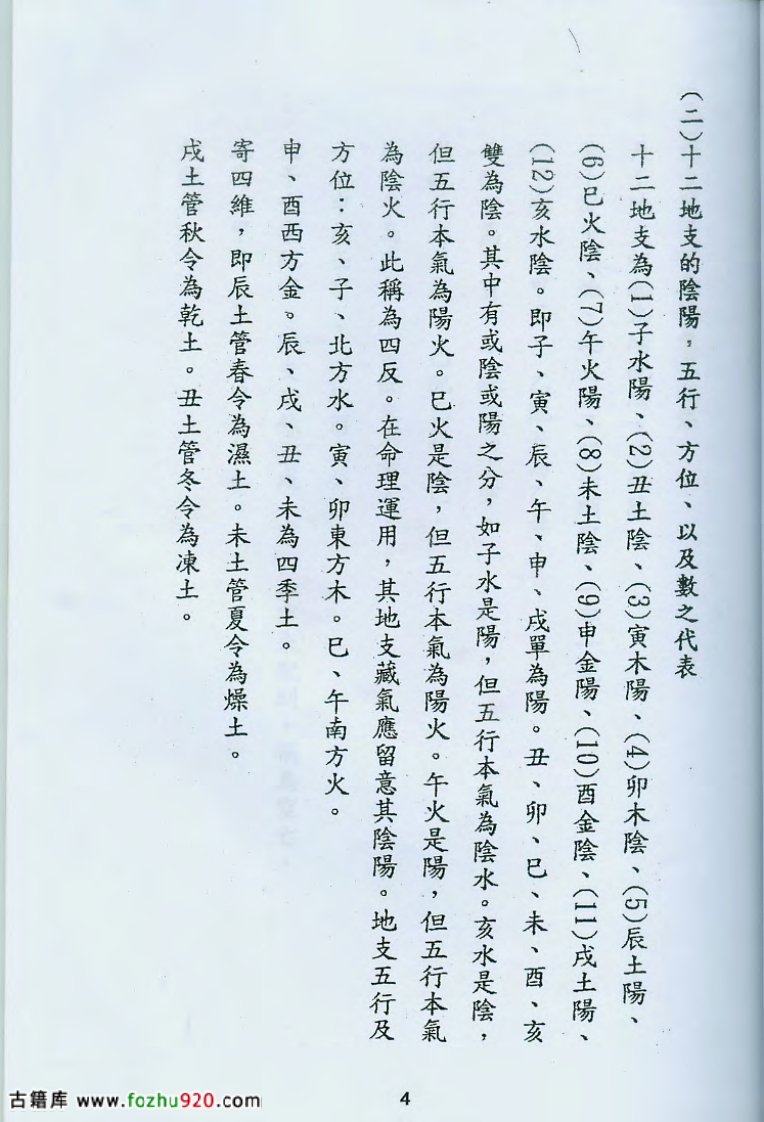 (二)十二地支的陰陽，五行、方位、以及數之代表
十二地支為(1)子水陽、(2)丑土陰、(3)寅木陽、(4)卯木陰、(5)辰土陽、
(6)巳火陰、(7)午火陽、(8)未土陰、(9)申金陽、(10)酉金陰、(11)戌土陽、
(12)亥水陰。即子、寅、辰、午、申、戌單為陽。丑、卯、巳、未、酉、亥
雙為陰。其中有或陰或陽之分，如子水是陽，但五行本氣為陰水。亥水是陰，
但五行本氣為陽火。巳火是陰，但五行本氣為陽火。午火是陽，但五行本氣
為陰火。此稱為四反。在命理運用，其地支藏氣應留意其陰陽。地支五行及
方位：亥、子、北方水。寅、卯東方木。巳、午南方火。
申、酉西方金。辰、戌、丑、未為四季土。
寄四維，即辰土管春令為濕土。未土管夏令為燥土。
戌土管秋令為乾土。丑土管冬令為凍土。
4
古籍库 www.fozhu920.com